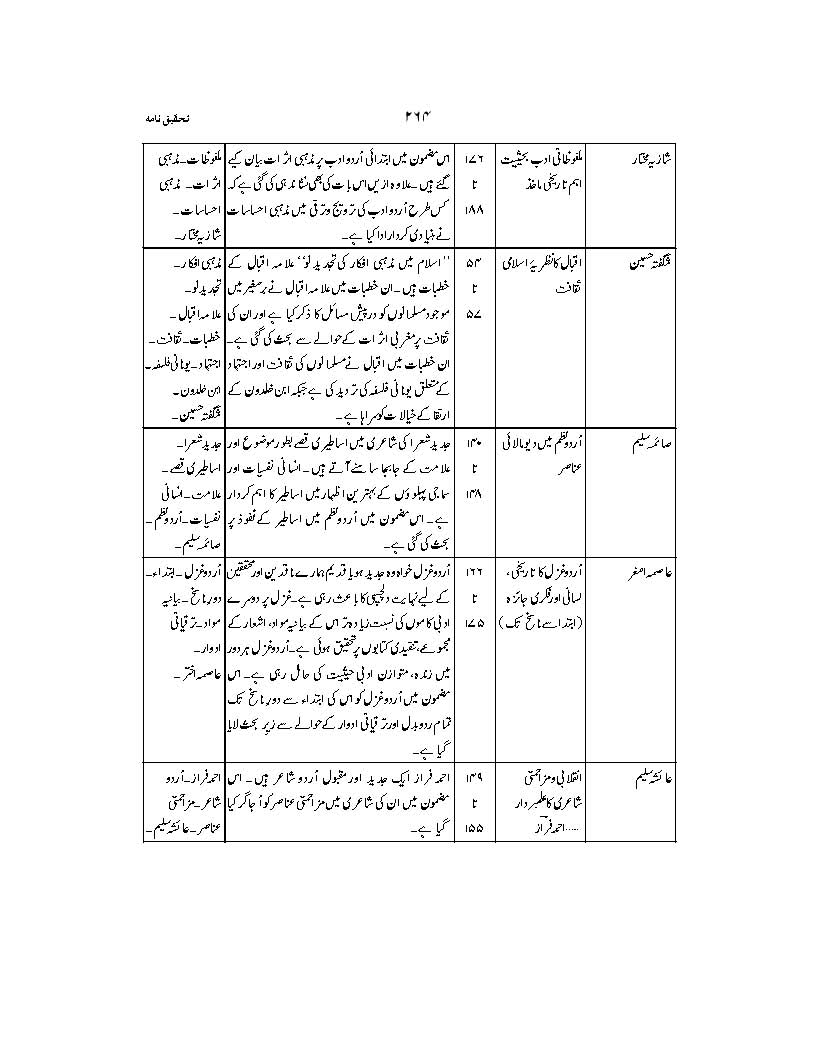 تحقیق نامہ
۲۶۴
شازیہ مختار
ملفوظاتی ادب بحیثیت
اہم تاریخی ماخذ
۱۷۶
تا
۱۸۸
اس مضمون میں ابتدائی اُردو ادب پر مذہبی اثرات بیان کیے
گئے ہیں۔ علاوہ ازیں اس بات کی بھی نشاندہی کی گئی ہے کہ
کس طرح اُردو ادب کی ترویج و ترقی میں مذہبی احساسات
نے بنیادی کردار ادا کیا ہے۔
ملفوظات۔ مذہبی
اثرات۔ مذہبی
احساسات۔
شازیہ مختار۔
شگفتہ حسین
اقبال کا نظریۂ اسلامی
ثقافت
۵۴
تا
۵۷
''اسلام میں مذہبی افکار کی تجدیدِ نو'' علامہ اقبال کے
خطبات ہیں۔ ان خطبات میں علامہ اقبال نے برصغیر میں
موجود مسلمانوں کو درپیش مسائل کا ذکر کیا ہے اور ان کی
ثقافت پر مغربی اثرات کے حوالے سے بحث کی گئی ہے۔
ان خطبات میں اقبال نے مسلمانوں کی ثقافت اور اجتہاد
کے متعلق یونانی فلسفہ کی تردید کی ہے جبکہ ابن خلدون کے
ارتقا کے خیالات کو سراہا ہے۔
مذہبی افکار۔
تجدیدِ نو۔
علامہ اقبال۔
خطبات۔ ثقافت۔
اجتہاد۔ یونانی فلسفہ۔
ابن خلدون۔
شگفتہ حسین۔
صائمہ سلیم
اُردو نظم میں دیومالائی
عناصر
۱۴۰
تا
۱۴۸
جدید شعرا کی شاعری میں اساطیری قصے بطور موضوع اور
علامت کے جابجا سامنے آتے ہیں۔ انسانی نفسیات اور
سماجی پہلوؤں کے بہترین اظہار میں اساطیر کا اہم کردار
ہے۔ اس مضمون میں اُردو نظم میں اساطیر کے نفوذ پر
بحث کی گئی ہے۔
جدید شعرا۔
اساطیری قصے۔
علامت۔ انسانی
نفسیات۔ اُردو نظم۔
صائمہ سلیم۔
عاصمہ اصغر
اُردو غزل کا تاریخی،
لسانی اور فکری جائزہ
(ابتدا سے ناسخ تک)
۱۶۶
تا
۱۷۵
اُردو غزل خواہ وہ جدید ہو یا قدیم ہمارے ناقدین اور محققین
کے لیے نہایت دلچسپی کا باعث رہی ہے۔ غزل پر دوسرے
ادبی کاموں کی نسبت زیادہ تر اس کے بیانیہ مواد، اشعار کے
مجموعے، تنقیدی کتابوں پر تحقیق ہوئی ہے۔ اُردو غزل ہر دور
میں زندہ، متوازن ادبی حیثیت کی حامل رہی ہے۔ اس
مضمون میں اُردو غزل کو اس کی ابتداء سے دورِ ناسخ تک
تمام ردوبدل اور ترقیاتی ادوار کے حوالے سے زیرِ بحث لایا
گیا ہے۔
اُردو غزل۔ ابتداء۔
دورِ ناسخ۔ بیانیہ
مواد۔ ترقیاتی
ادوار۔
عاصمہ اختر۔
عائشہ سلیم
انقلابی و مزاحمتی
شاعری کا علمبردار
.....احمد فرازؔ
۱۴۹
تا
۱۵۵
احمد فراز ایک جدید اور مقبول اُردو شاعر ہیں۔ اس
مضمون میں ان کی شاعری میں مزاحمتی عناصر کو اُجاگر کیا
گیا ہے۔
احمد فراز۔ اُردو
شاعر۔ مزاحمتی
عناصر۔ عائشہ سلیم۔